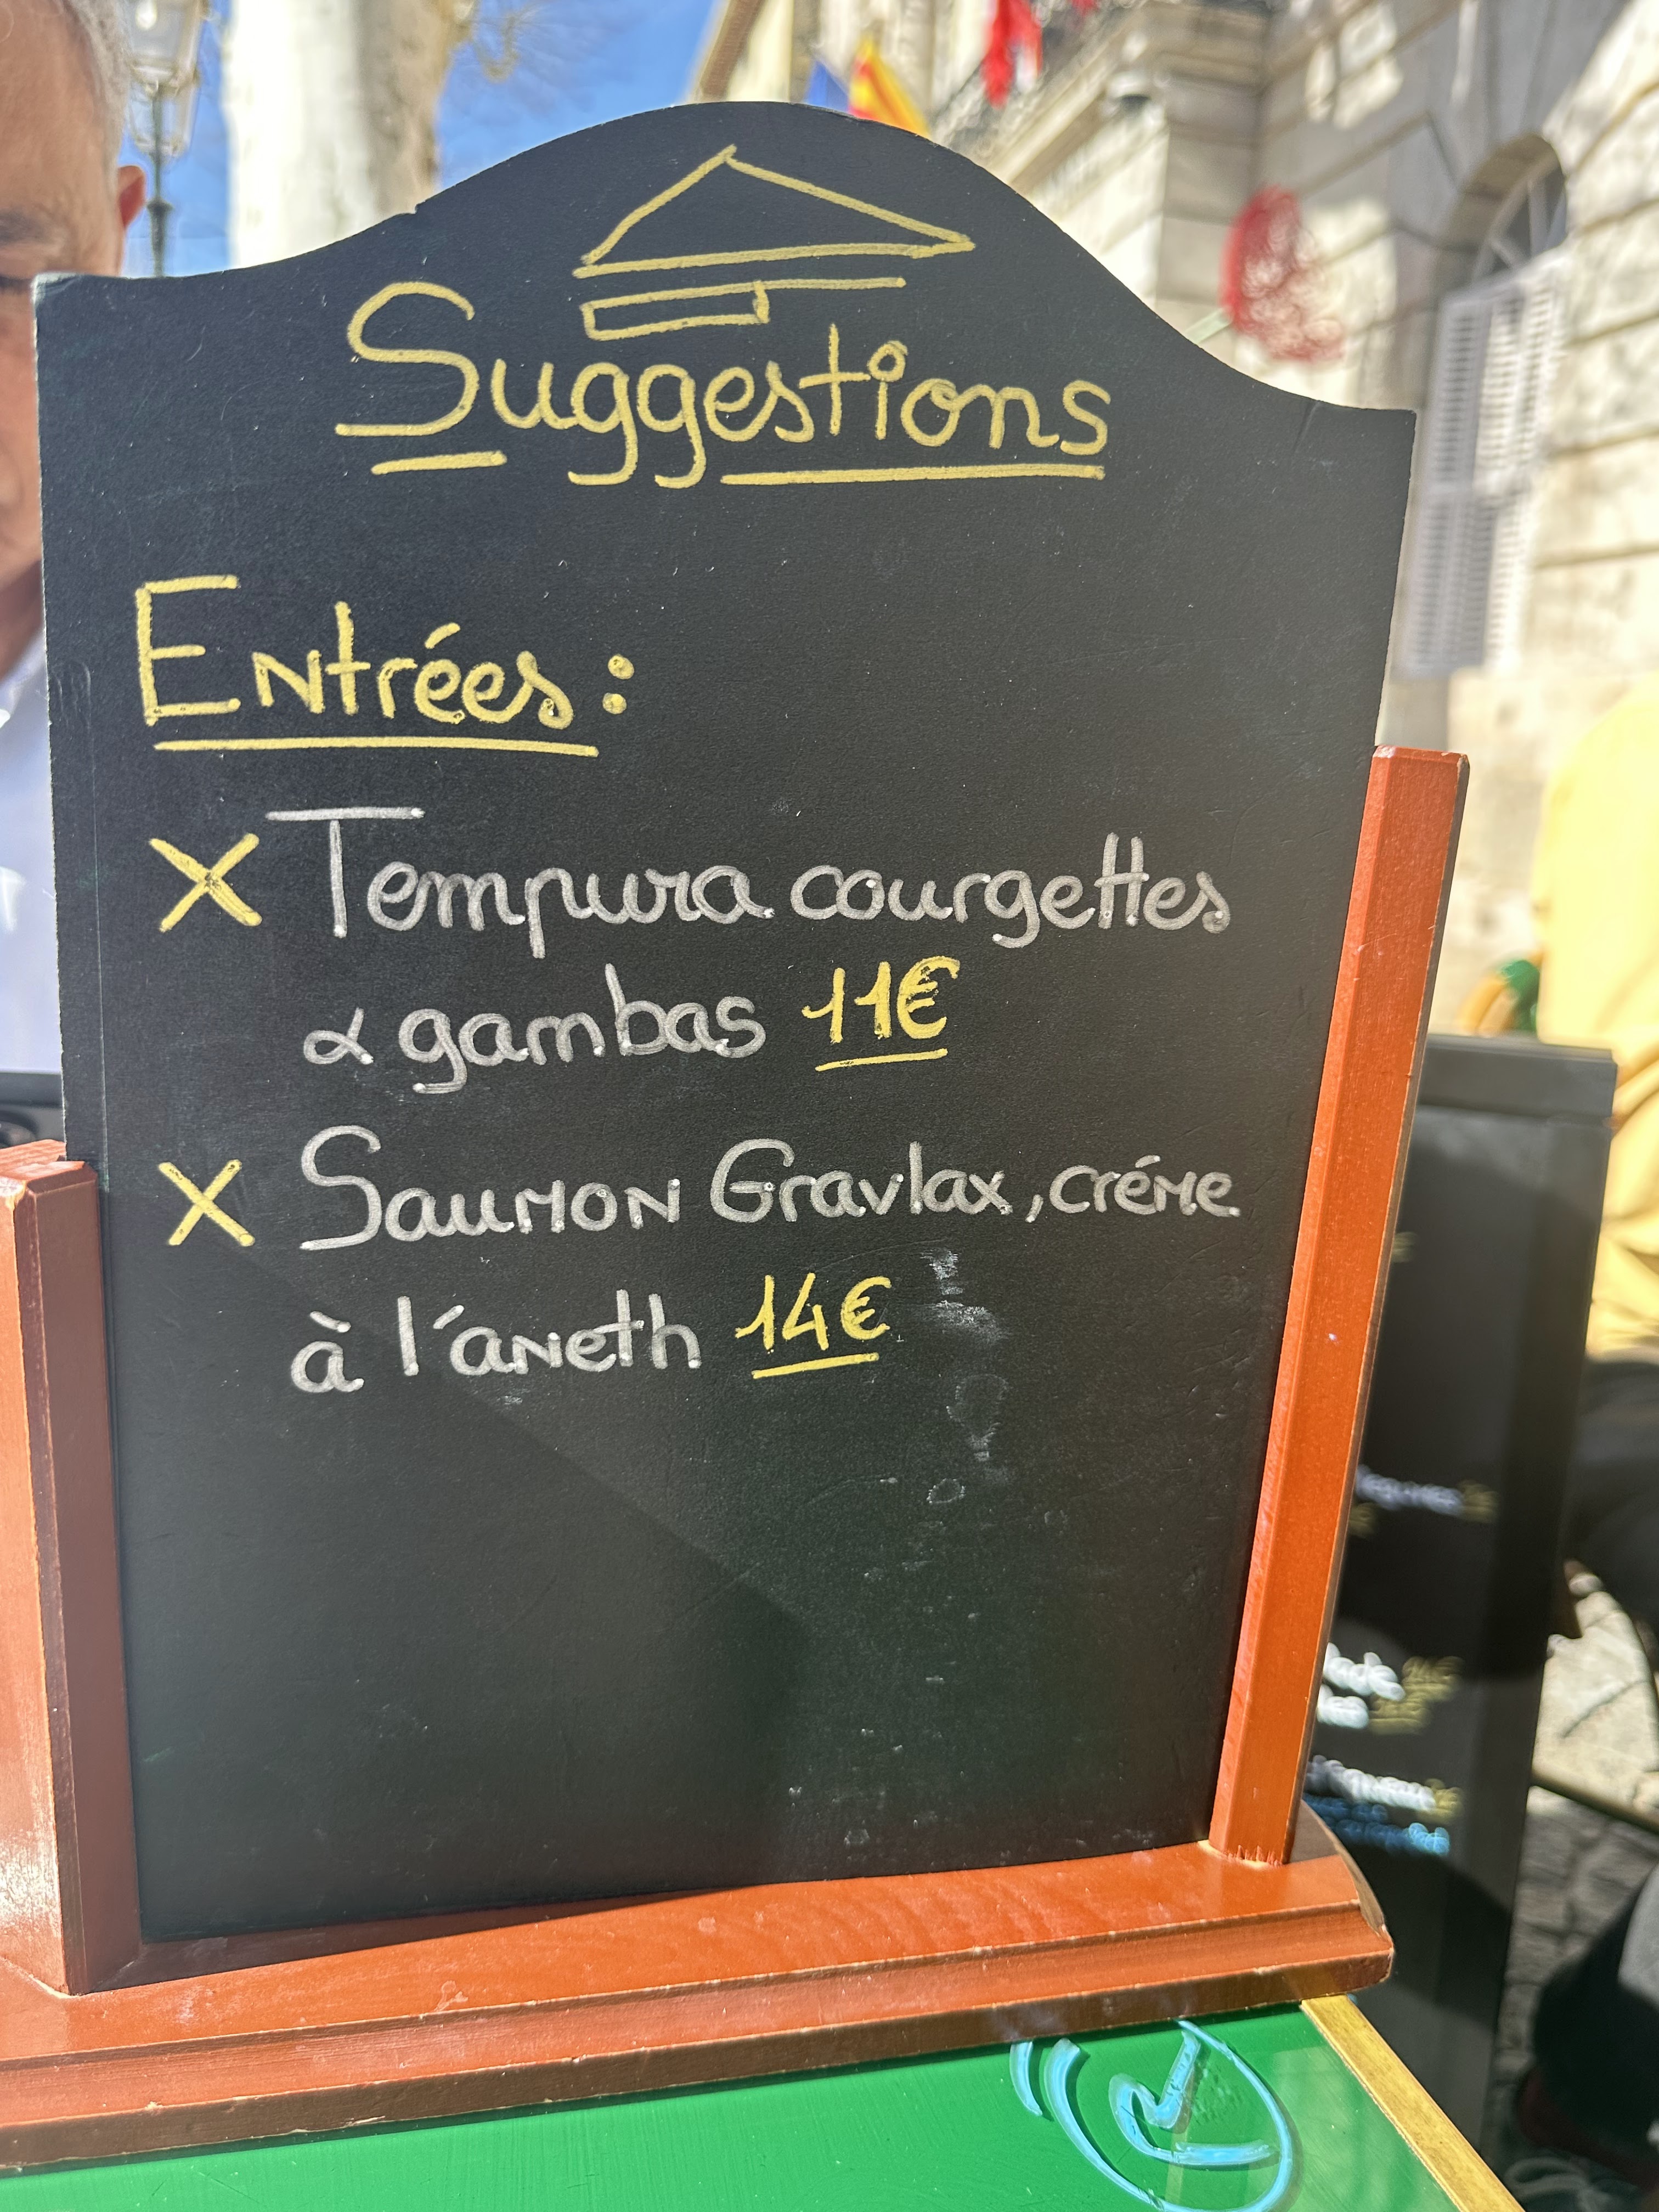 Suggestions
Entrées :
x Tempura courgettes
& gambas 11€
x Saumon Gravlax, créme
à l'aneth 14€